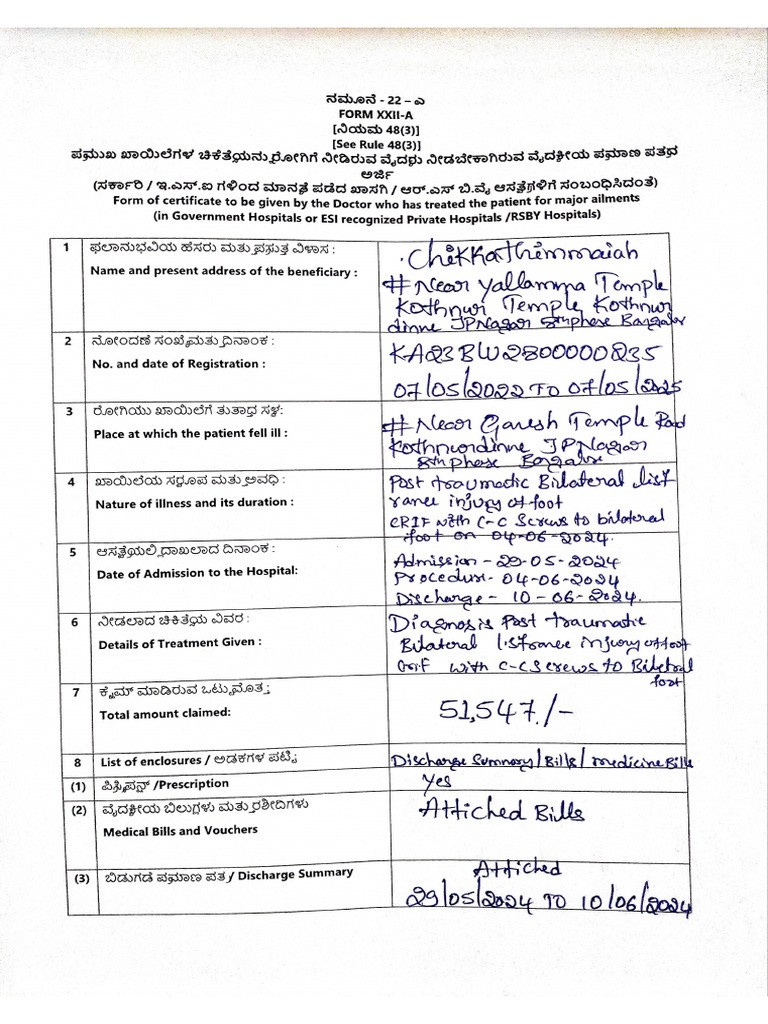 ನಮೂನೆ - 22 – ಎ
FORM XXII-A
[ನಿಯಮ 48(3)]
[See Rule 48(3)]
ಪ್ರಮುಖ ಖಾಯಿಲೆಗಳ ಚಿಕಿತ್ಸೆಯನ್ನು ರೋಗಿಗೆ ನೀಡಿರುವ ವೈದ್ಯರು ನೀಡಬೇಕಾಗಿರುವ ವೈದ್ಯಕೀಯ ಪ್ರಮಾಣ ಪತ್ರದ
ಅರ್ಜಿ
(ಸರ್ಕಾರಿ / ಇ.ಎಸ್.ಐ ಗಳಿಂದ ಮಾನ್ಯತೆ ಪಡೆದ ಖಾಸಗಿ / ಆರ್.ಎಸ್ ಬಿ.ವೈ ಆಸ್ಪತ್ರೆಗಳಿಗೆ ಸಂಬಂಧಿಸಿದಂತೆ)
Form of certificate to be given by the Doctor who has treated the patient for major ailments
(in Government Hospitals or ESI recognized Private Hospitals /RSBY Hospitals)
1 ಫಲಾನುಭವಿಯ ಹೆಸರು ಮತ್ತು ಪ್ರಸ್ತುತ ವಿಳಾಸ :
Name and present address of the beneficiary :
Chikkathimmaiah
# Near Yallamma Temple
Kothnur Temple Kothnur
dinne JP Nagar 8th phase Bangalor
2 ನೋಂದಣಿ ಸಂಖ್ಯೆ ಮತ್ತು ದಿನಾಂಕ :
No. and date of Registration :
KA23BW2800000835
07/05/2022 TO 07/05/2025
3 ರೋಗಿಯು ಖಾಯಿಲೆಗೆ ತುತ್ತಾದ ಸ್ಥಳ:
Place at which the patient fell ill :
# Near Ganesh Temple Road
Kothnurdinne JP Nagar
8th phase Bangalore
4 ಖಾಯಿಲೆಯ ಸ್ವರೂಪ ಮತ್ತು ಅವಧಿ :
Nature of illness and its duration :
Post traumatic Bilateral list
rance injury of foot
CRIF with C-C Screws to bilateral
foot on 04-06-2024.
5 ಆಸ್ಪತ್ರೆಯಲ್ಲಿ ದಾಖಲಾದ ದಿನಾಂಕ :
Date of Admission to the Hospital:
Admission - 29-05-2024
Procedure- 04-06-2024
Discharge - 10-06-2024.
6 ನೀಡಲಾದ ಚಿಕಿತ್ಸೆಯ ವಿವರ :
Details of Treatment Given :
Diagnosis Post traumatic
Bilateral listrance injury of foot
Crif with C-C Screws to Biletral
foot
7 ಕ್ಲೈಮ್ ಮಾಡಿರುವ ಒಟ್ಟು ಮೊತ್ತ :
Total amount claimed:
51,547/-
8 List of enclosures / ಅಡಕಗಳ ಪಟ್ಟಿ:
Discharge Summary/Bills/medicine Bills
(1) ಪ್ರಿಸ್ಕ್ರಿಪ್ಷನ್ /Prescription
Yes
(2) ವೈದ್ಯಕೀಯ ಬಿಲ್ಲುಗಳು ಮತ್ತು ರಶೀದಿಗಳು
Medical Bills and Vouchers
Attiched Bills
(3) ಬಿಡುಗಡೆ ಪ್ರಮಾಣ ಪತ್ರ / Discharge Summary
Attiched
29/05/2024 TO 10/06/2024